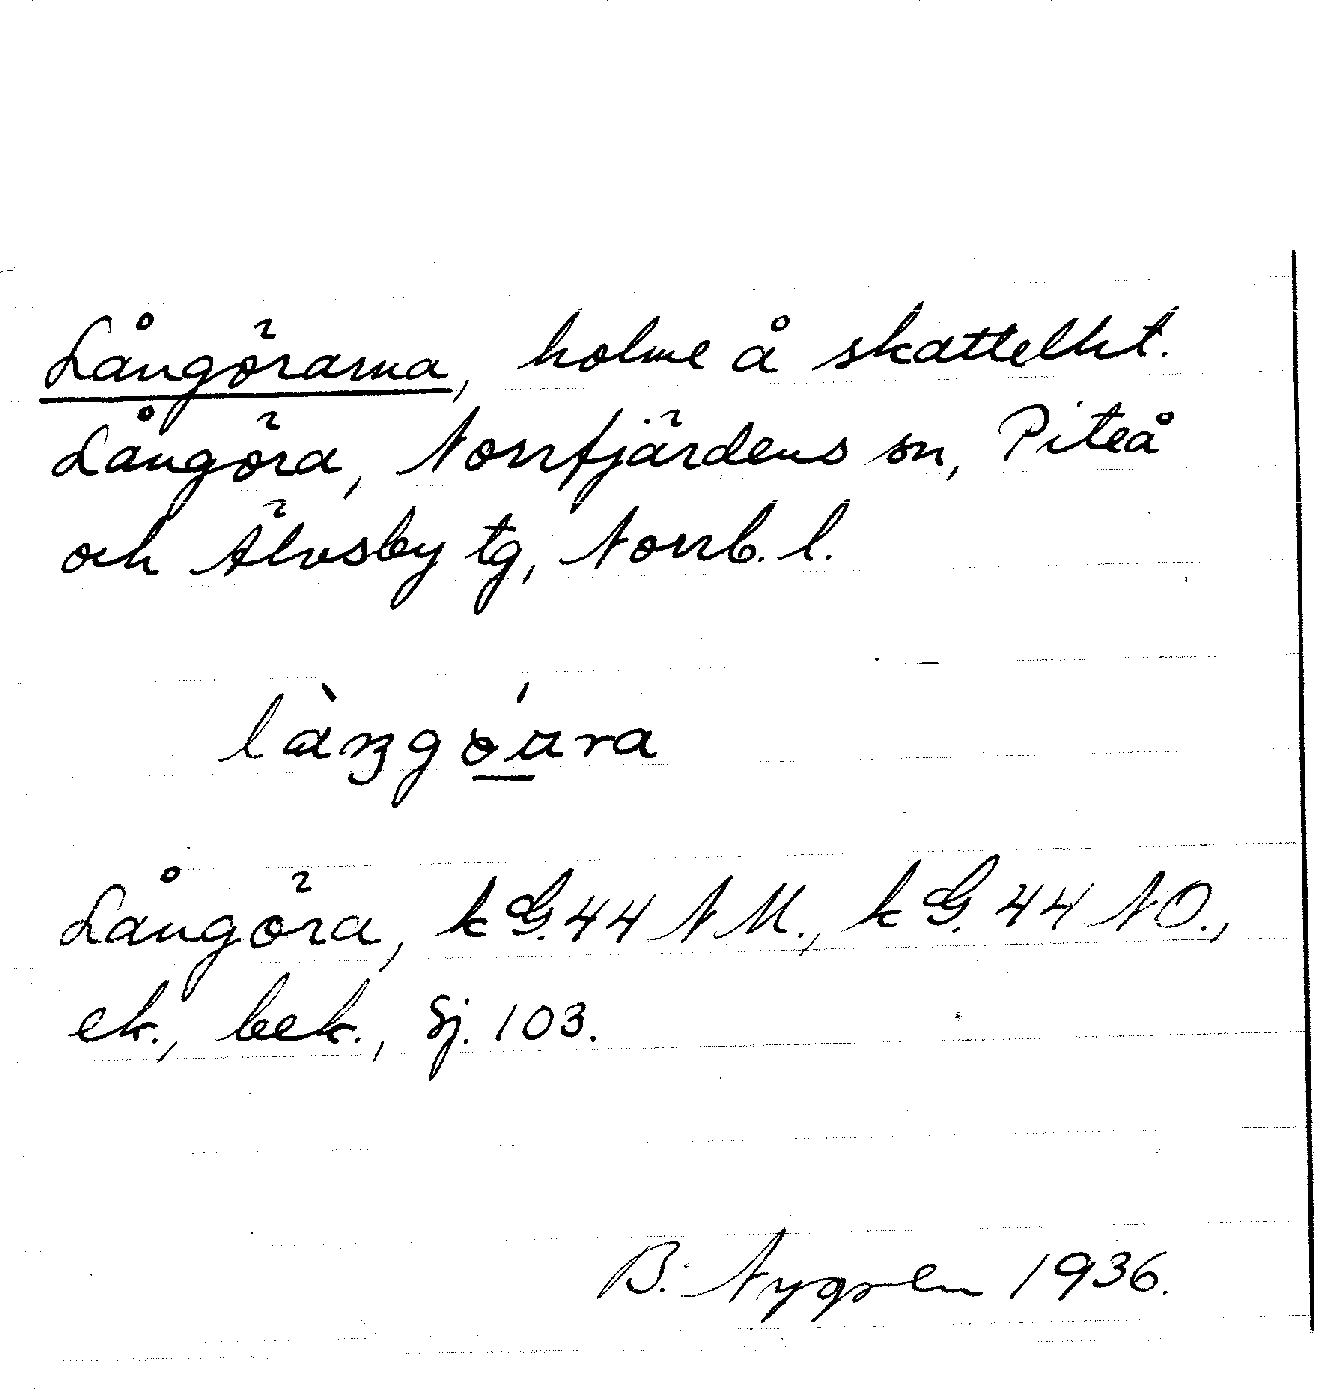 Långörarna, holme å skattelht.
Långöra, Norrfjärdens sn, Piteå
och Älvsby tg, Norrb. l.
làŋgo̯u̯ra
Långöra, k G. 44 N M., k G. 44 N O.,
ek., bek., Sj. 103.
B. Nygren 1936.